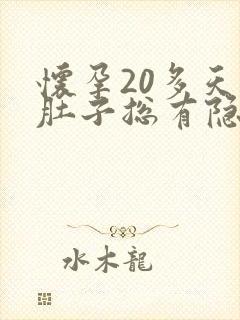 懷孕20多天
肚子总有隐
水木龍